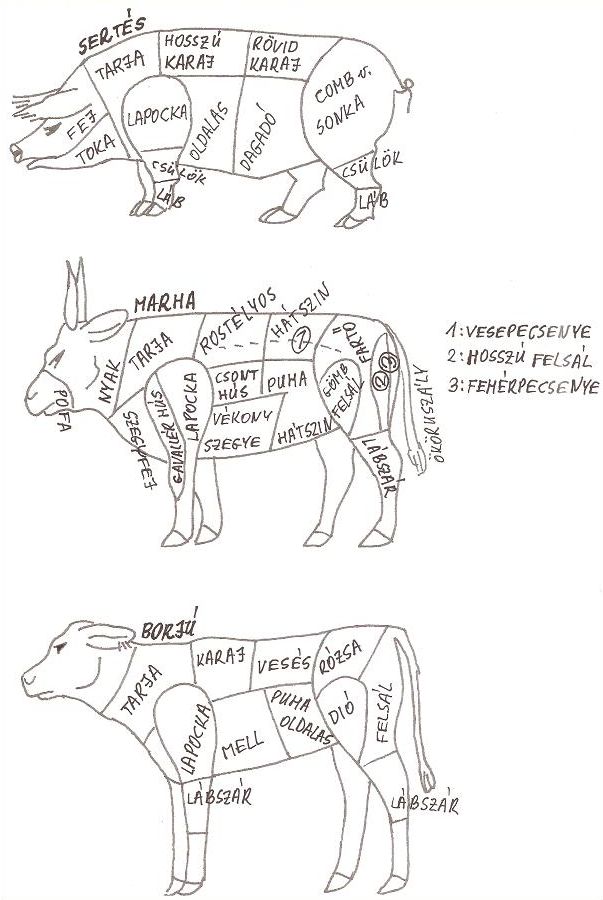 SERTÉS
TARJA
HOSSZÚ
KARAJ
RÖVID
KARAJ
COMB v.
SONKA
FEJ
TOKA
LAPOCKA
OLDALAS
DAGADÓ
CSÜLÖK
LÁB
CSÜLÖK
LÁB
MARHA
POFA
NYAK
TARJA
ROSTÉLYOS
HÁTSZIN
1
FARTŐ
2
3
SZEGYFEJ
GAVALLÉRHÚS
LAPOCKA
CSONT
HÚS
PUHA
HÁTSZIN
VÉKONY
SZEGYE
GÖMB
FELSÁL
LÁBSZÁR
ÖKÖRUSZÁLY
1: VESEPECSENYE
2: HOSSZÚ FELSÁL
3: FEHÉRPECSENYE
BORJÚ
TARJA
KARAJ
VESÉS
RÓZSA
LAPOCKA
MELL
PUHA
OLDALAS
DIÓ
FELSÁL
LÁBSZÁR
LÁBSZÁR